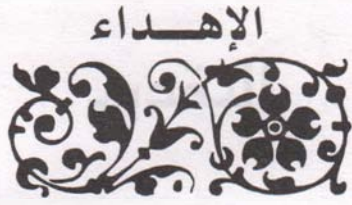 الإهــداء